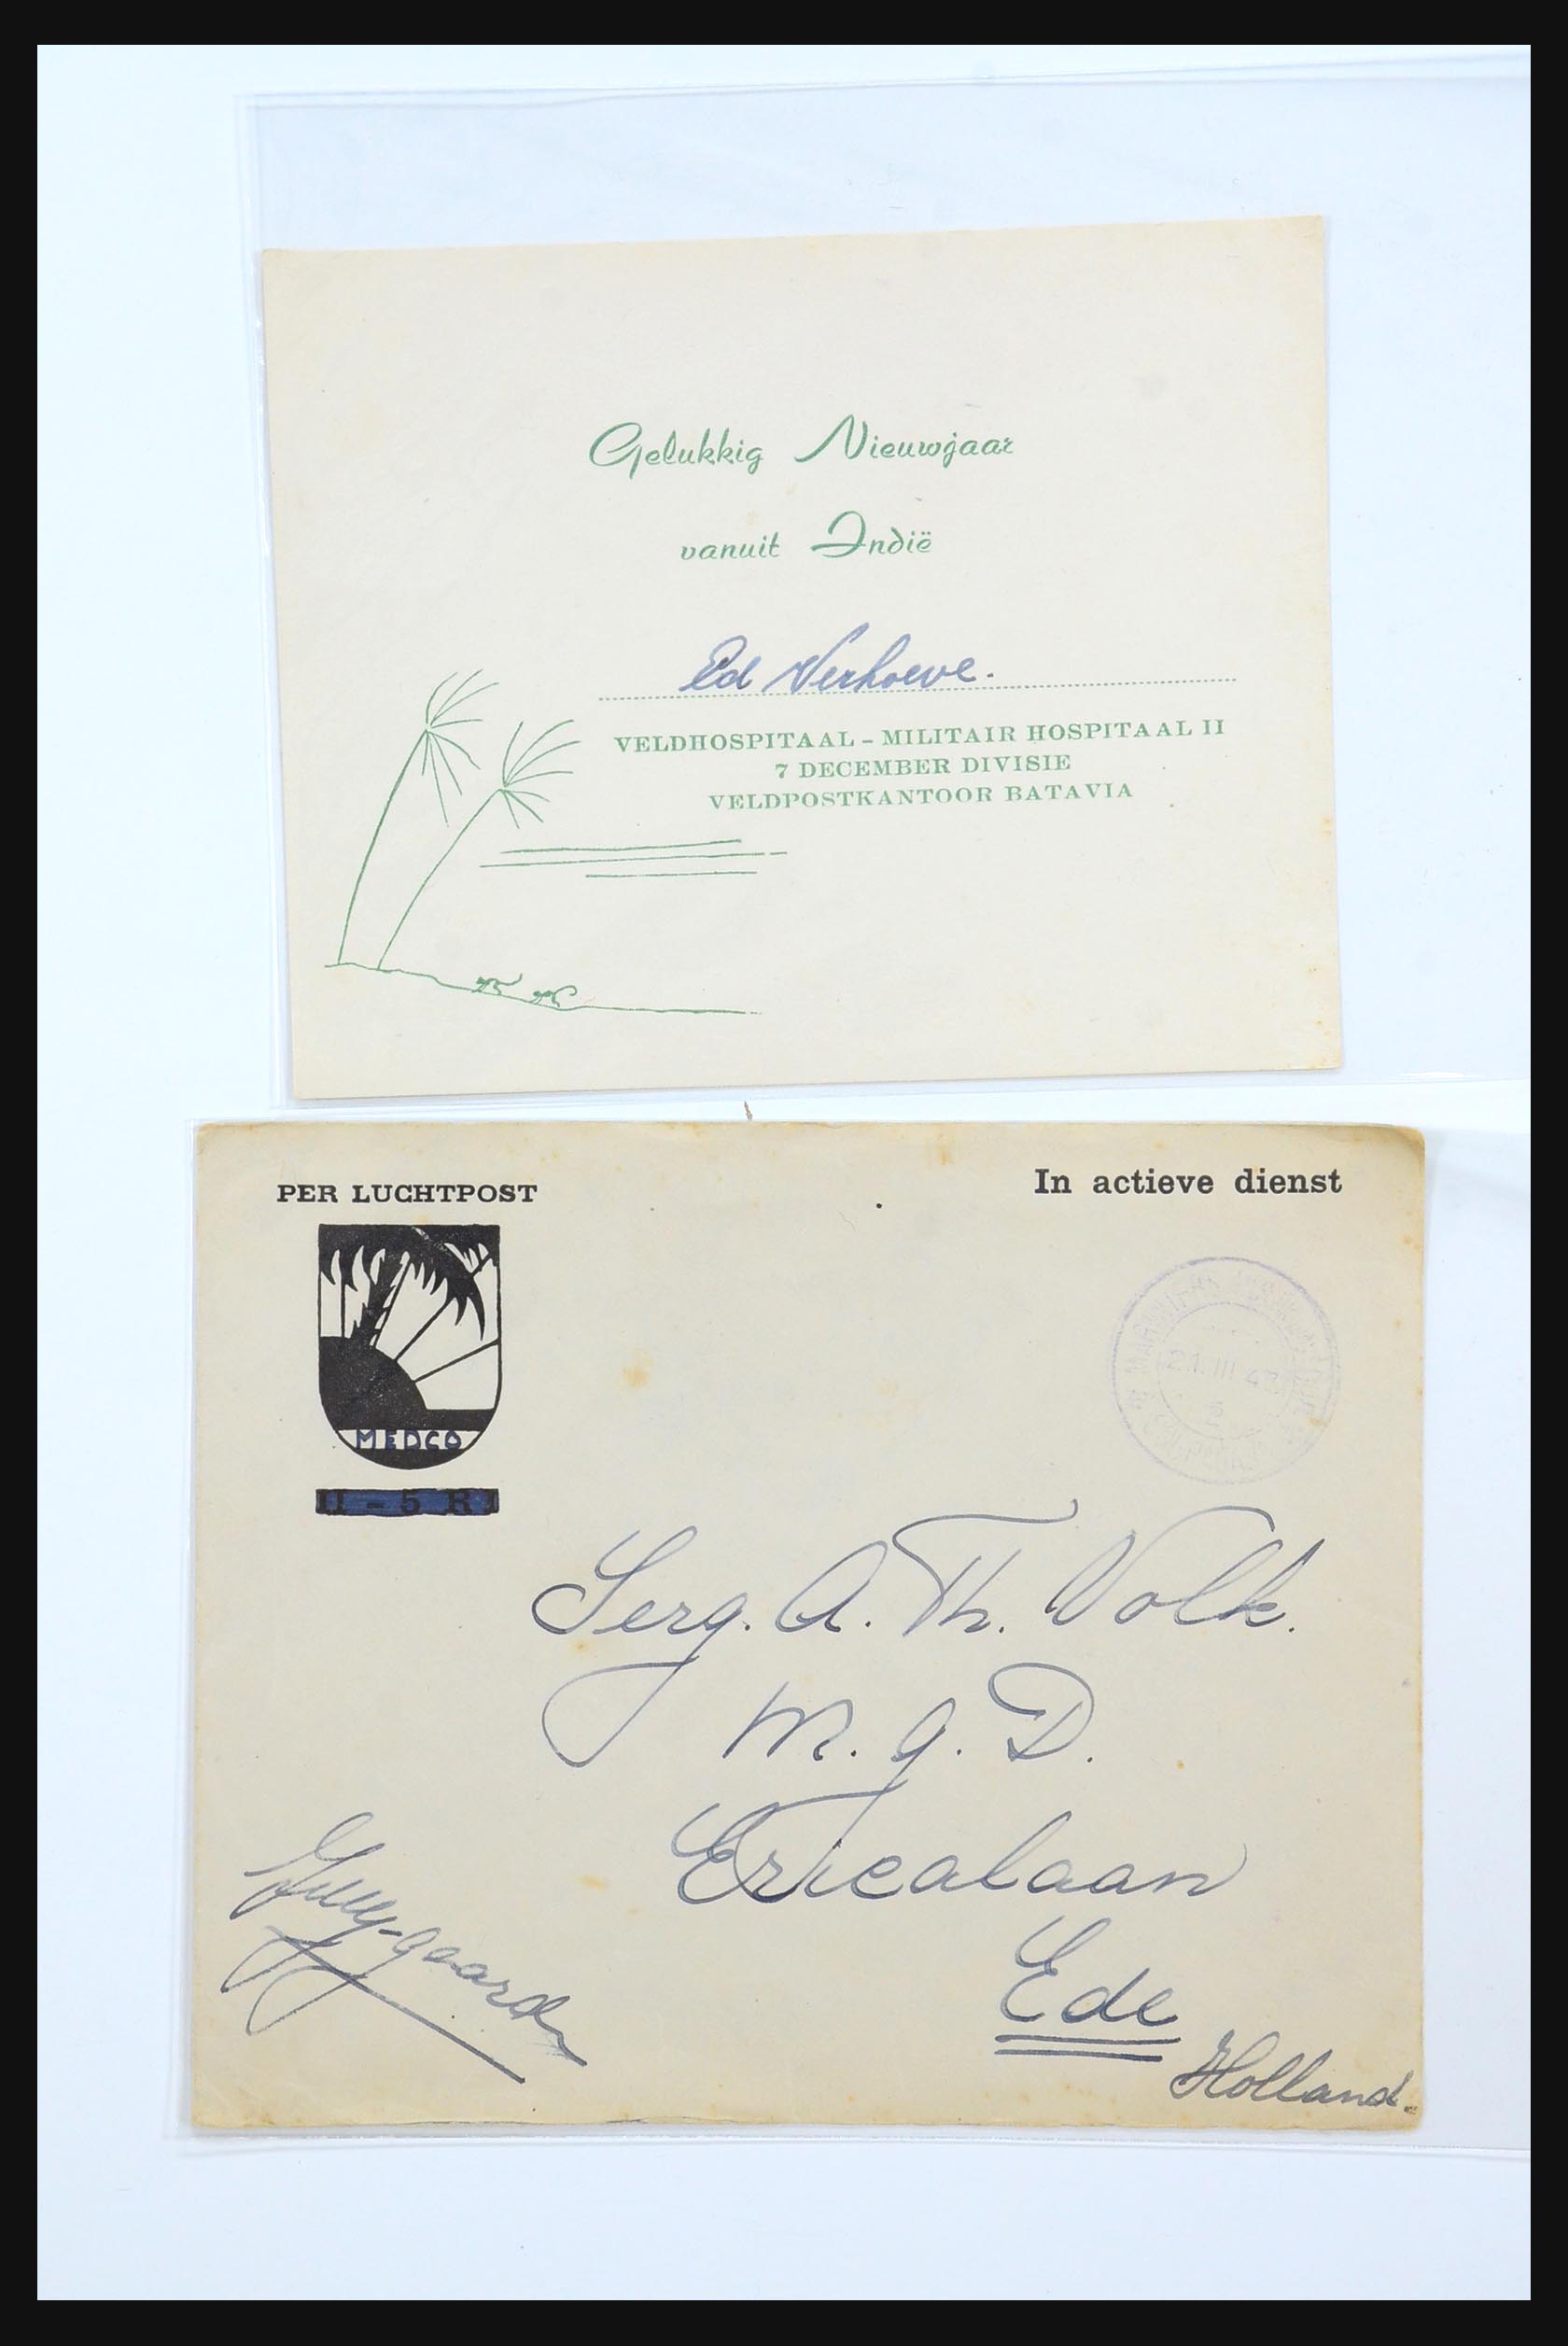 Gelukkig Nieuwjaar
vanuit Indië
Ed Verhoeve.
VELDHOSPITAAL - MILITAIR HOSPITAAL II
7 DECEMBER DIVISIE
VELDPOSTKANTOOR BATAVIA
PER LUCHTPOST
In actieve dienst
MEDCO
II - 5 RI
21. III 47
Serg. A. Th. Volk.
M. G. D.
Ericalaan
Ede
Holland.